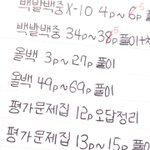 백발백중 X-10 4p~6p
백발백중 34p~38p 풀이+
올백 3p~27p 풀이
올백 49p~69p 풀이
평가문제집 12p 오답정리
평가문제집 13p~15p 풀이